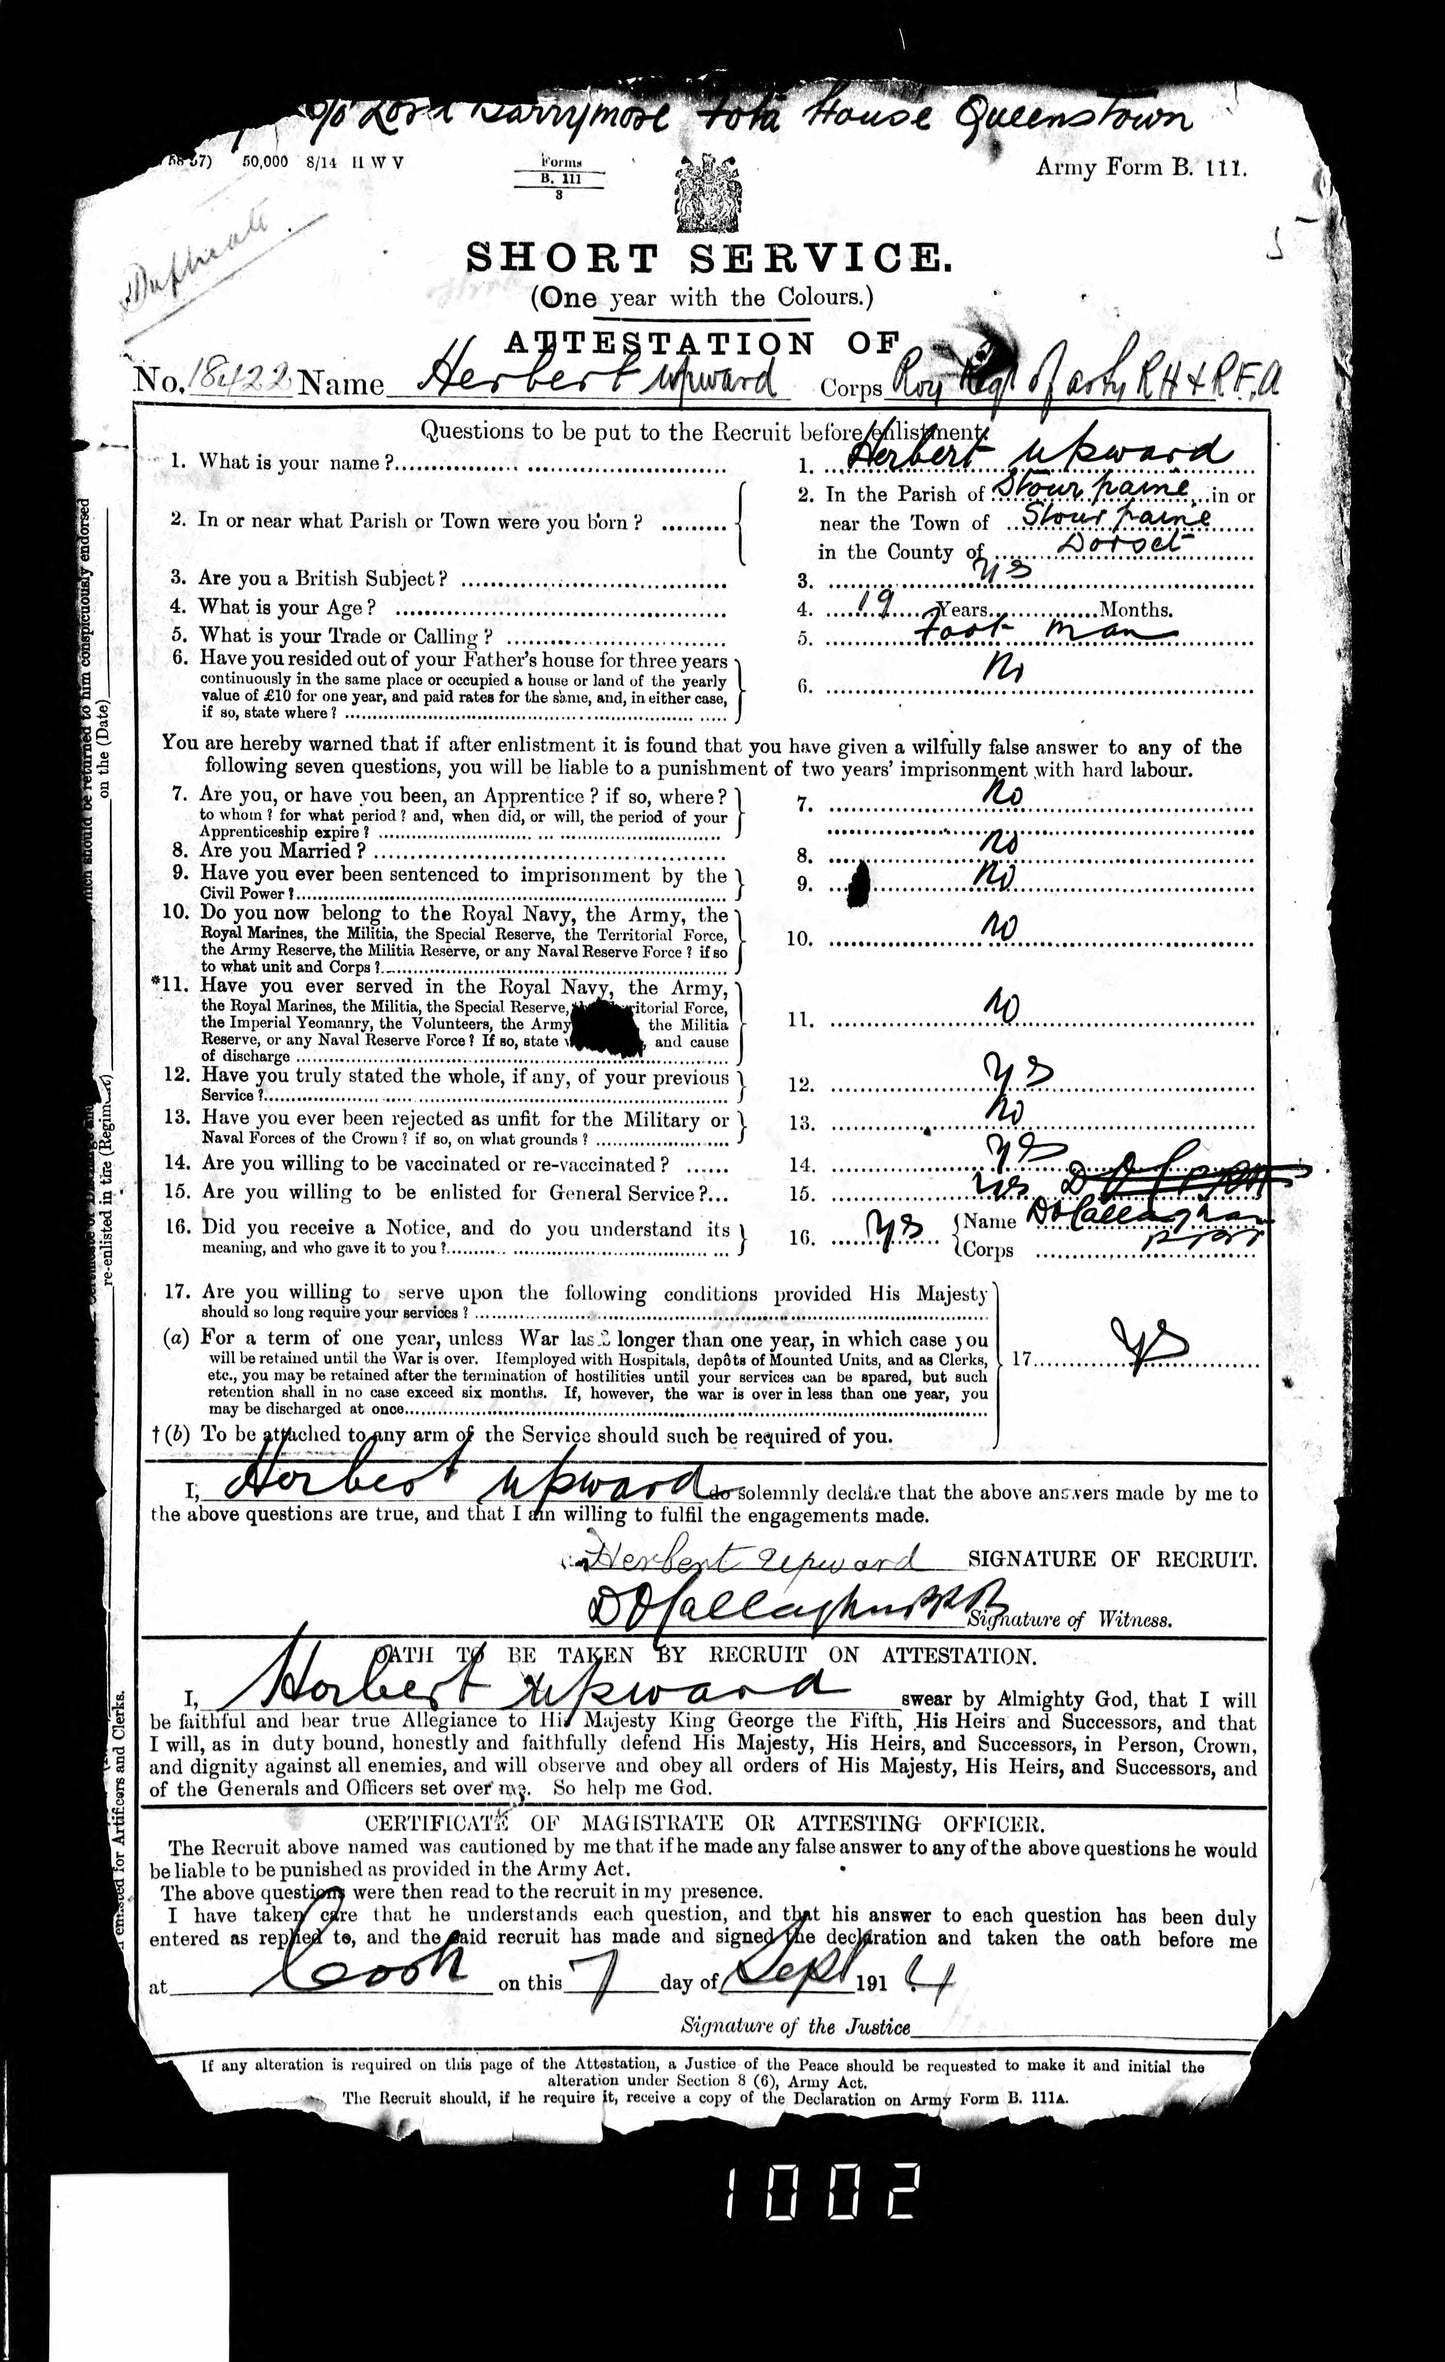 c/o Lord Barrymore Fota House Queenstown
57) 50,000 8/14 H W V
Forms
B. 111
3
Army Form B. 111.
Duplicate
SHORT SERVICE.
(One year with the Colours.)
ATTESTATION OF
No. 18422 Name Herbert Upward Corps Roy Regt of arty R H & R F.A
Questions to be put to the Recruit before enlistment.
1. What is your name?........ 1. Herbert Upward
2. In or near what Parish or Town were you born? ........ 2. In the Parish of Stourpaine in or
near the Town of Stourpaine
in the County of Dorset
3. Are you a British Subject? ........ 3. ys
4. What is your Age? ........ 4. 19 Years........Months.
5. What is your Trade or Calling? ........ 5. Foot man
6. Have you resided out of your Father's house for three years
continuously in the same place or occupied a house or land of the yearly
value of £10 for one year, and paid rates for the same, and, in either case,
if so, state where? ........ 6. No
You are hereby warned that if after enlistment it is found that you have given a wilfully false answer to any of the
following seven questions, you will be liable to a punishment of two years' imprisonment with hard labour.
7. Are you, or have you been, an Apprentice? if so, where? 7. No
to whom? for what period? and, when did, or will, the period of your
Apprenticeship expire? ........
8. Are you Married? ........ 8. No
9. Have you ever been sentenced to imprisonment by the 9. No
Civil Power?........
10. Do you now belong to the Royal Navy, the Army, the
Royal Marines, the Militia, the Special Reserve, the Territorial Force, 10. No
the Army Reserve, the Militia Reserve, or any Naval Reserve Force? if so
to what unit and Corps?........
*11. Have you ever served in the Royal Navy, the Army,
the Royal Marines, the Militia, the Special Reserve, ritorial Force,
the Imperial Yeomanry, the Volunteers, the Army , the Militia 11. No
Reserve, or any Naval Reserve Force? If so, state , and cause
of discharge ........
12. Have you truly stated the whole, if any, of your previous 12. ys
Service?........
13. Have you ever been rejected as unfit for the Military or 13. No
Naval Forces of the Crown? if so, on what grounds? ........
14. Are you willing to be vaccinated or re-vaccinated? ...... 14. ys
15. Are you willing to be enlisted for General Service?... 15. ys
16. Did you receive a Notice, and do you understand its 16. ys Name D O'Callaghan
meaning, and who gave it to you?........ Corps
17. Are you willing to serve upon the following conditions provided His Majesty
should so long require your services? ........
(a) For a term of one year, unless War las longer than one year, in which case you
will be retained until the War is over. If employed with Hospitals, depôts of Mounted Units, and as Clerks, 17. ys
etc., you may be retained after the termination of hostilities until your services can be spared, but such
retention shall in no case exceed six months. If, however, the war is over in less than one year, you
may be discharged at once........
† (b) To be attached to any arm of the Service should such be required of you.
I, Herbert Upward do solemnly declare that the above answers made by me to
the above questions are true, and that I am willing to fulfil the engagements made.
Herbert Upward SIGNATURE OF RECRUIT.
D O'Callaghan Signature of Witness.
OATH TO BE TAKEN BY RECRUIT ON ATTESTATION.
I, Herbert Upward swear by Almighty God, that I will
be faithful and bear true Allegiance to His Majesty King George the Fifth, His Heirs and Successors, and that
I will, as in duty bound, honestly and faithfully defend His Majesty, His Heirs, and Successors, in Person, Crown,
and dignity against all enemies, and will observe and obey all orders of His Majesty, His Heirs, and Successors, and
of the Generals and Officers set over me. So help me God.
CERTIFICATE OF MAGISTRATE OR ATTESTING OFFICER.
The Recruit above named was cautioned by me that if he made any false answer to any of the above questions he would
be liable to be punished as provided in the Army Act.
The above questions were then read to the recruit in my presence.
I have taken care that he understands each question, and that his answer to each question has been duly
entered as replied to, and the said recruit has made and signed the declaration and taken the oath before me
at Cork on this 7 day of Sept 1914
Signature of the Justice
If any alteration is required on this page of the Attestation, a Justice of the Peace should be requested to make it and initial the
alteration under Section 8 (6), Army Act.
The Recruit should, if he require it, receive a copy of the Declaration on Army Form B. 111A.
should be returned to him conspicuously endorsed
on the (Date)
re-enlisted in the (Regiment)
enlisted for Artificers and Clerks.
1002